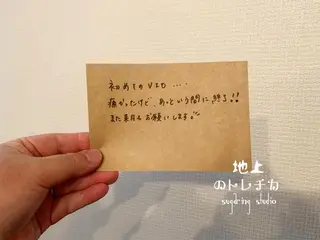 初めてのVIO、、、
痛かったけど、あっという間に終了!!
また来月もお願いします。
地上
のトレチカ
sugaring studio